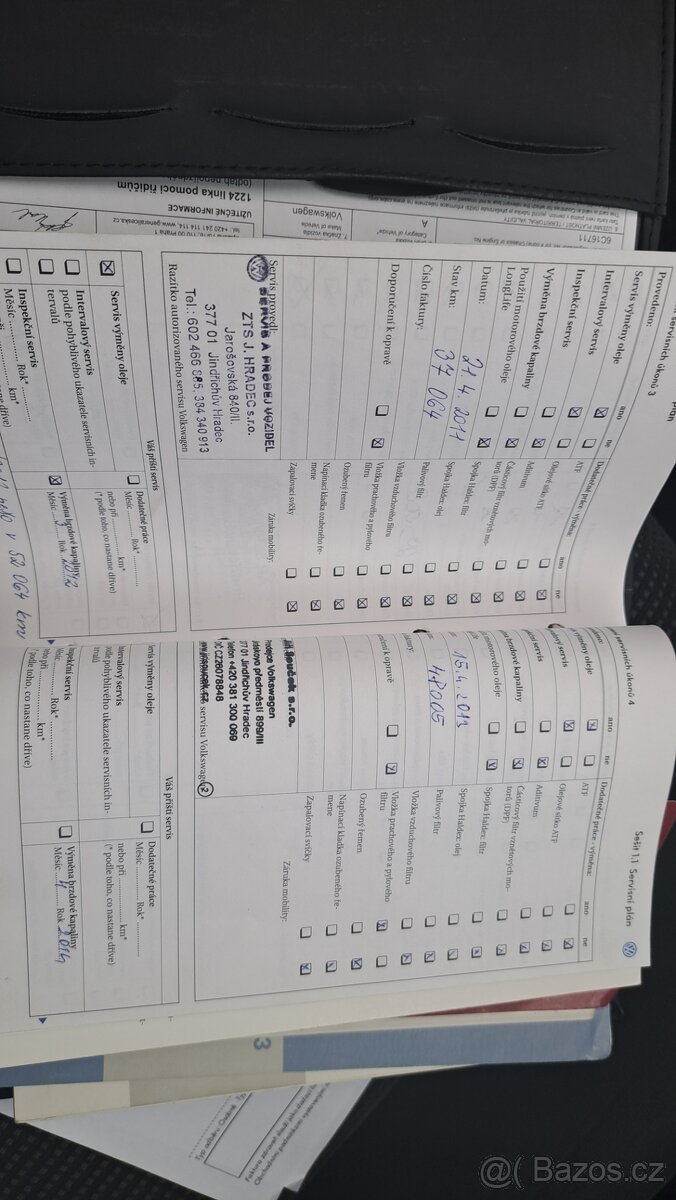 n servisních úkonů 3
Plán
Provedeno:
ano
ne
Servis výměny oleje
Intervalový servis
Inspekční servis
Výměna brzdové kapaliny
Použití motorového oleje
LongLife
Datum: 21.4.2011
Stav km: 37 064
Číslo faktury:
Doporučení k opravě
Servis provedl:
SERVIS A PRODEJ VOZIDEL
ZTS J. HRADEC s.r.o.
Jarošovská 840/II.
377 01 Jindřichův Hradec
Tel.: 602 466 885, 384 340 913
Razítko autorizovaného servisu Volkswagen
Dodatečné práce - výměna:
ano
ne
ATF
Olejové sítko ATF
Aditivum
Částicový filtr vznětových mo-
torů (DPF)
Spojka Haldex: filtr
Spojka Haldex: olej
Palivový filtr
Vložka vzduchového filtru
Vložka prachového a pylového
filtru
Ozubený řemen
Napínací kladka ozubeného ře-
mene
Zapalovací svíčky
Záruka mobility:
Váš příští servis
Servis výměny oleje
Intervalový servis
podle pohyblivého ukazatele servisních in-
tervalů
Inspekční servis
Měsíc Rok*
Dodatečné práce
Měsíc Rok*
nebo při km*
(* podle toho, co nastane dříve)
Výměna brzdové kapaliny
Měsíc Rok 2012
nebo v 52 064 km
servisních úkonů 4
Sešit 1.1 Servisní plán
ano
ne
výměny oleje
brzdové kapaliny
motorového oleje
15.4.2013
48005
ení k opravě
Souček s.r.o.
Prodejce Volkswagen
předměstí 899/III
377 01 Jindřichův Hradec
Telefon +420 381 300 069
DIČ CZ26078848
servisu Volkswagen
2
Dodatečné práce - výměna:
ano
ne
ATF
Olejové sítko ATF
Aditivum
Částicový filtr vznětových mo-
torů (DPF)
Spojka Haldex: filtr
Spojka Haldex: olej
Palivový filtr
Vložka vzduchového filtru
Vložka prachového a pylového
filtru
Ozubený řemen
Napínací kladka ozubeného ře-
mene
Zapalovací svíčky
Záruka mobility:
Váš příští servis
Servis výměny oleje
Intervalový servis
podle pohyblivého ukazatele servisních in-
tervalů
Inspekční servis
Rok*
km*
podle toho, co nastane dříve)
Dodatečné práce
Měsíc Rok*
nebo při km*
(* podle toho, co nastane dříve)
Výměna brzdové kapaliny
Měsíc 4 Rok 2014
1224 linka pomoci řidičům
UŽITEČNÉ INFORMACE
Volkswagen
A
6C16711
3
@ Bazos.cz